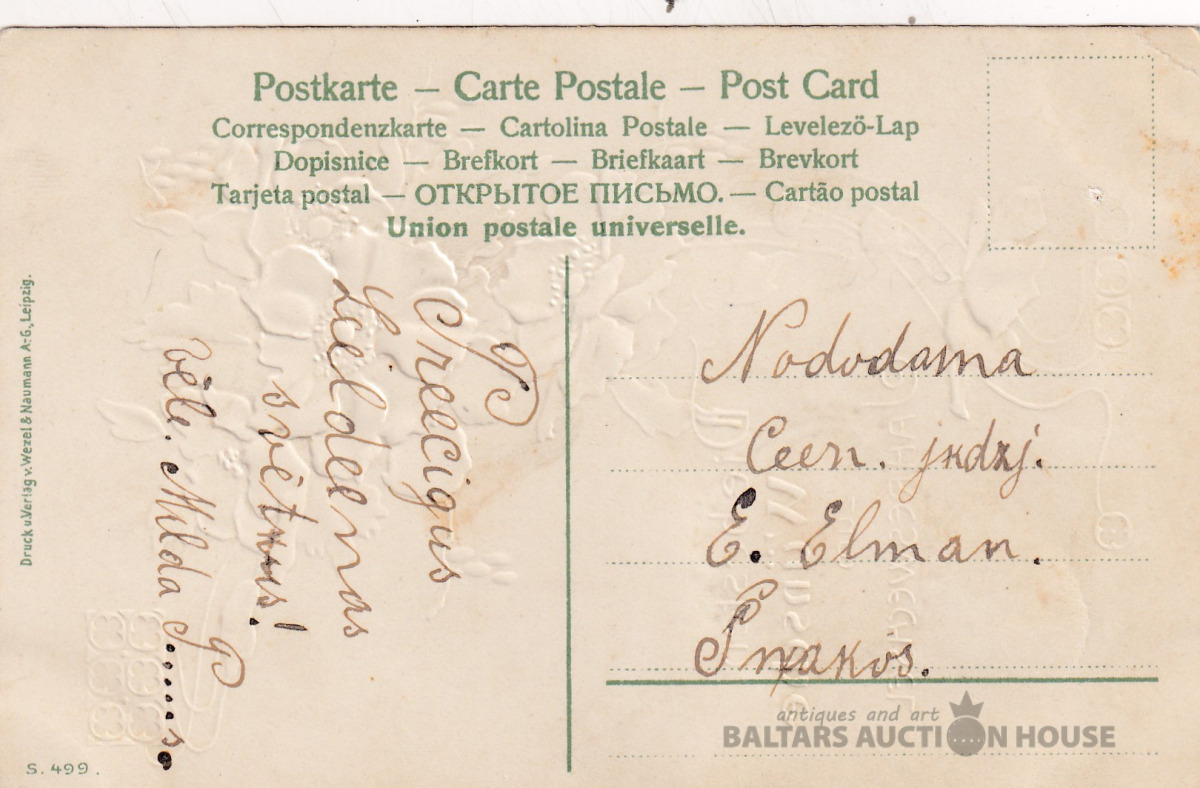 Postkarte — Carte Postale — Post Card
Correspondenzkarte — Cartolina Postale — Levelező-Lap
Dopisnice — Brefkort — Briefkaart — Brevkort
Tarjeta postal — ОТКРЫТОЕ ПИСЬМО. — Cartão postal
Union postale universelle.
Preecigus
Leeldeenas
svētkus!
vēle. Milda P......s.
Nododama
Ceen. jkdzj.
E. Elman.
Druck u. Verlag v. Wezel & Naumann A.-G., Leipzig.
S. 499.
antiques and art
BALTARS AUCTION HOUSE